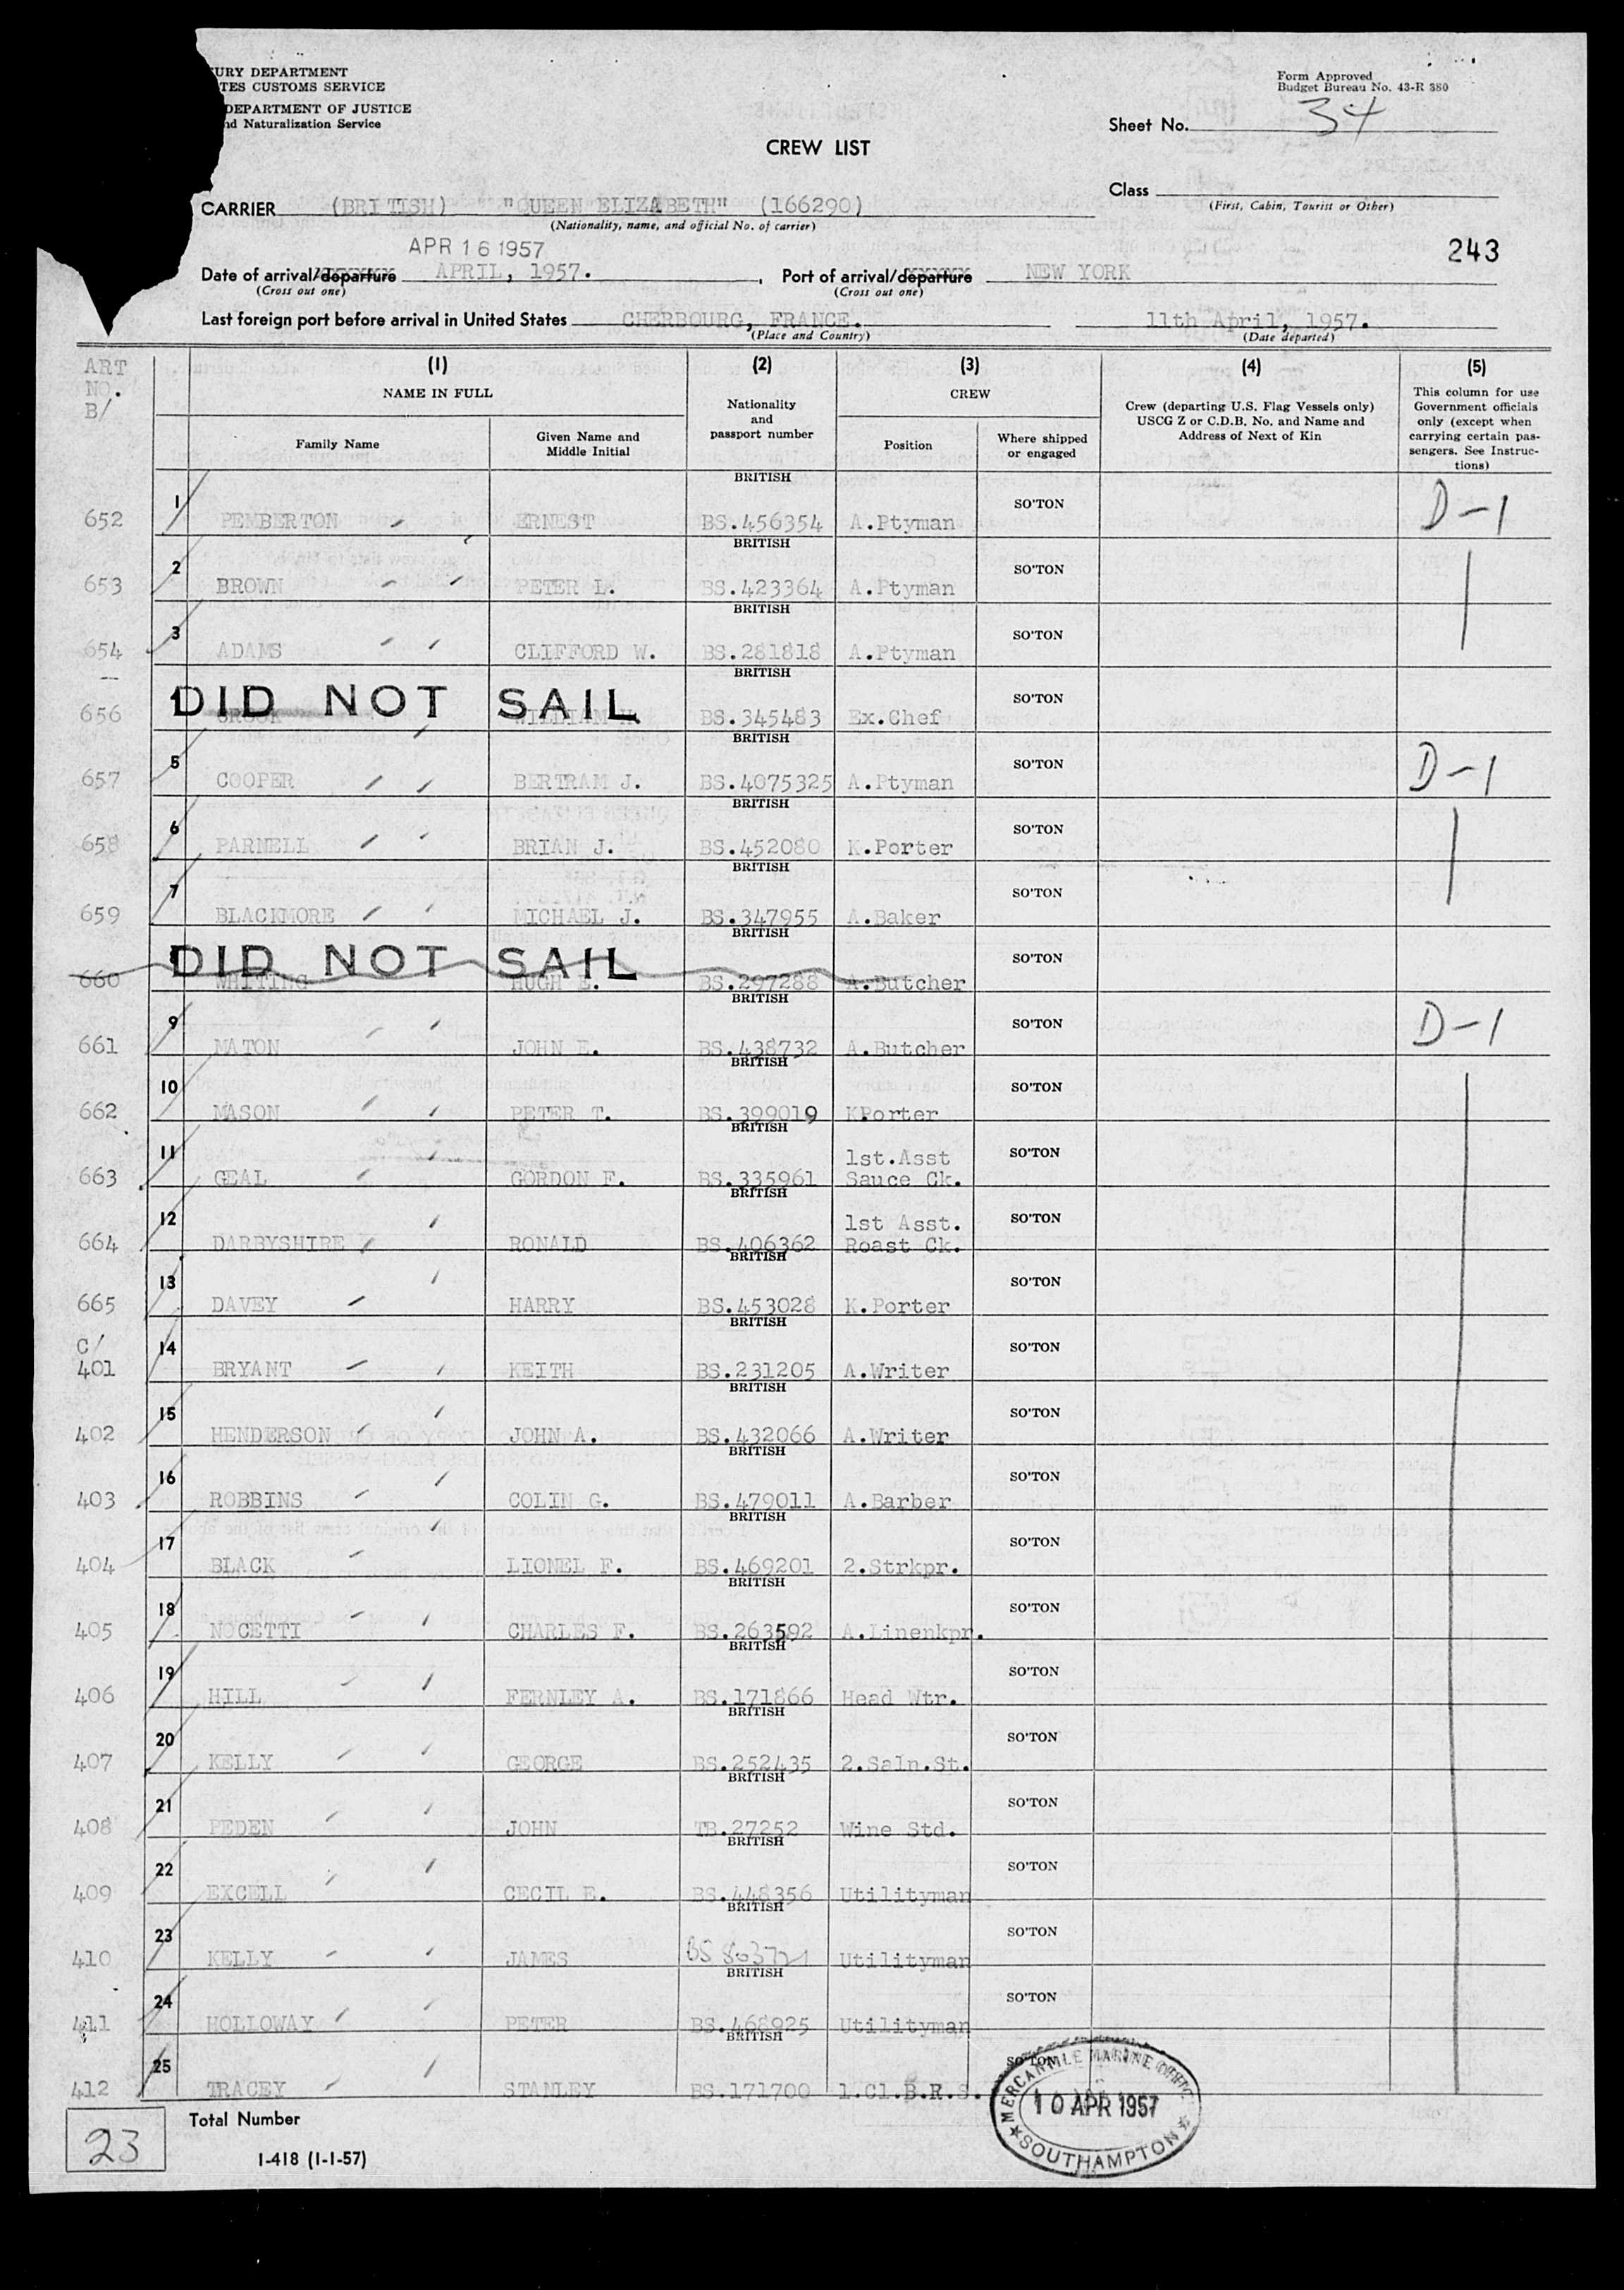 URY DEPARTMENT
TES CUSTOMS SERVICE
DEPARTMENT OF JUSTICE
nd Naturalization Service
Form Approved
Budget Bureau No. 43-R 380
Sheet No. 34
CREW LIST
Class
(First, Cabin, Tourist or Other)
CARRIER (BRITISH) "QUEEN ELIZABETH" (166290)
(Nationality, name, and official No. of carrier)
243
APR 16 1957
Date of arrival/departure APRIL, 1957. Port of arrival/departure NEW YORK
(Cross out one) (Cross out one)
Last foreign port before arrival in United States CHERBOURG, FRANCE. 11th April, 1957.
(Place and Country) (Date departed)
ART NO. B/
(1) (2) (3) (4) (5)
NAME IN FULL
Nationality and passport number
CREW
Crew (departing U.S. Flag Vessels only) USCG Z or C.D.B. No. and Name and Address of Next of Kin
This column for use Government officials only (except when carrying certain passengers. See Instructions)
Family Name Given Name and Middle Initial Position Where shipped or engaged
BRITISH
652 1 PEMBERTON ERNEST BS.456354 A.Ptyman SO'TON D-1
BRITISH
653 2 BROWN PETER L. BS.423364 A.Ptyman SO'TON
BRITISH
654 3 ADAMS CLIFFORD W. BS.281818 A.Ptyman SO'TON
BRITISH
DID NOT SAIL
656 WILLIAM H. BS.345483 Ex.Chef SO'TON
BRITISH
657 5 COOPER BERTRAM J. BS.4075325 A.Ptyman SO'TON D-1
BRITISH
658 6 PARNELL BRIAN J. BS.452080 K.Porter SO'TON
BRITISH
659 7 BLACKMORE MICHAEL J. BS.347955 A.Baker SO'TON
BRITISH
DID NOT SAIL
660 WHITING HUGH E. BS.297288 A.Butcher SO'TON
BRITISH
661 9 MATON JOHN E. BS.438732 A.Butcher SO'TON D-1
BRITISH
662 10 MASON PETER T. BS.399019 KPorter SO'TON
BRITISH
663 11 GEAL GORDON F. BS.335961 1st.Asst Sauce Ck. SO'TON
BRITISH
664 12 DARBYSHIRE RONALD BS.406362 1st Asst. Roast Ck. SO'TON
BRITISH
665 13 DAVEY HARRY BS.453028 K.Porter SO'TON
BRITISH
C/
401 14 BRYANT KEITH BS.231205 A.Writer SO'TON
BRITISH
402 15 HENDERSON JOHN A. BS.432066 A.Writer SO'TON
BRITISH
403 16 ROBBINS COLIN G. BS.479011 A.Barber SO'TON
BRITISH
404 17 BLACK LIONEL F. BS.469201 2.Strkpr. SO'TON
BRITISH
405 18 NOCETTI CHARLES F. BS.263592 A.Linenkpr. SO'TON
BRITISH
406 19 HILL FERNLEY A. BS.171866 Head Wtr. SO'TON
BRITISH
407 20 KELLY GEORGE BS.252435 2.Saln.St. SO'TON
BRITISH
408 21 PEDEN JOHN TB.27252 Wine Std. SO'TON
BRITISH
409 22 EXCELL CECIL E. BS.448356 Utilityman SO'TON
BRITISH
410 23 KELLY JAMES BS Utilityman SO'TON
BRITISH
411 24 HOLLOWAY PETER BS.468925 Utilityman SO'TON
BRITISH
412 25 TRACEY STANLEY BS.171700 1.Cl.B.R.S. SO'TON
MERCANTILE MARINE OFFICE
10 APR 1957
SOUTHAMPTON
23 Total Number
I-418 (1-1-57)